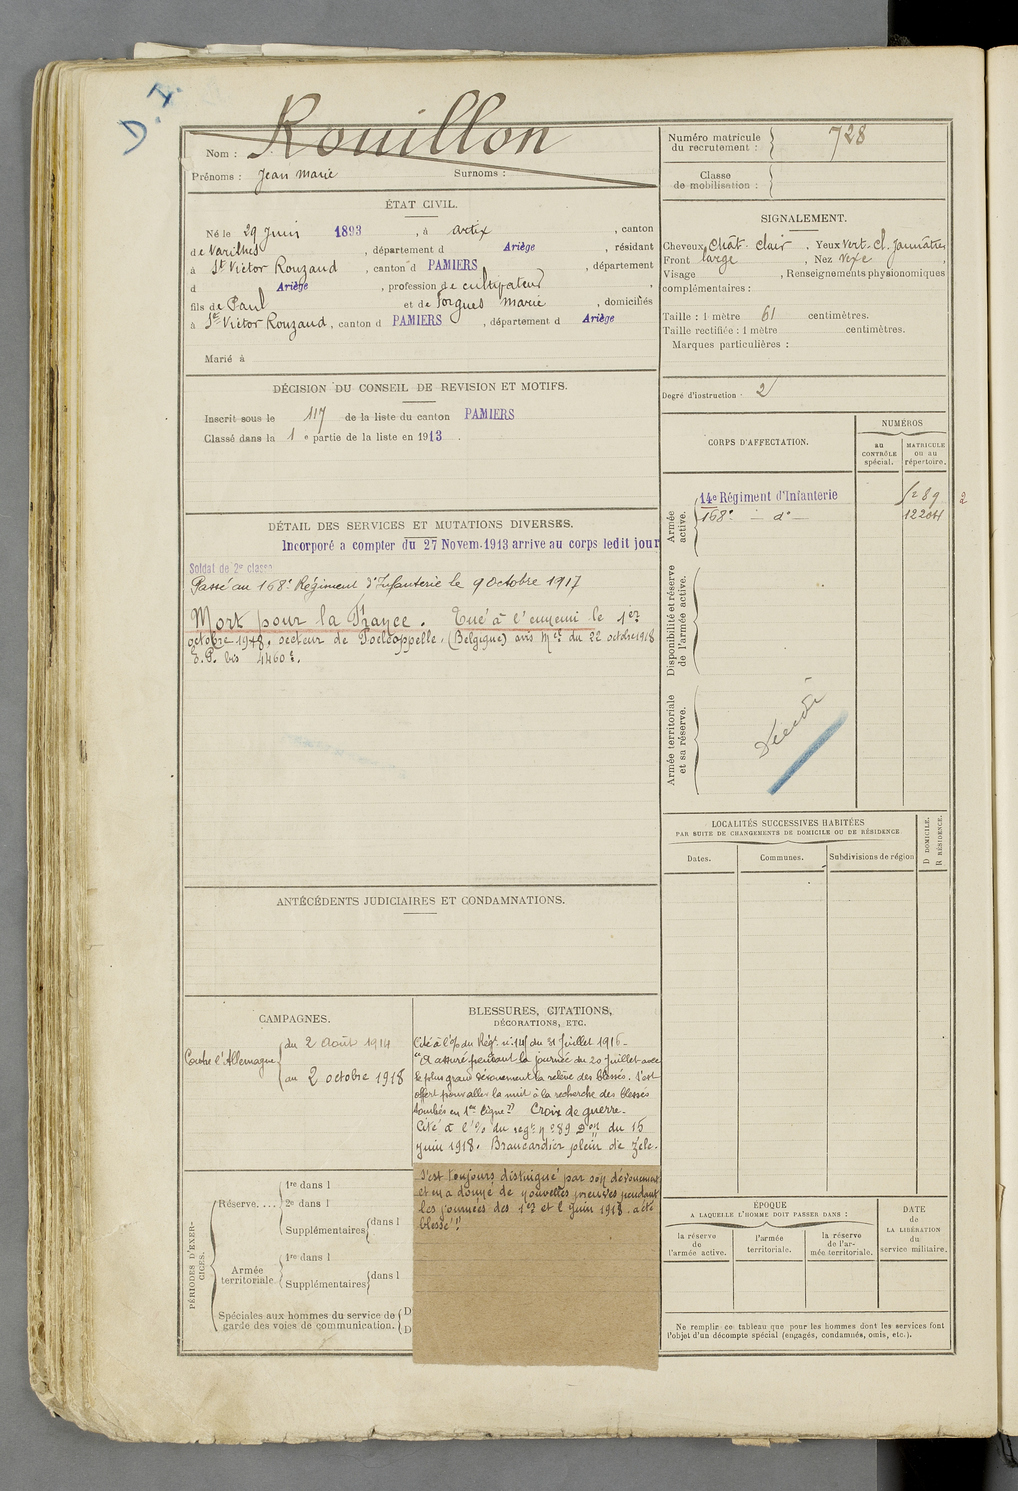 D. 4.
Nom : Rouillon
Prénoms : Jean Marie Surnoms :
ÉTAT CIVIL.
Né le 29 Juin 1893, à Artix, canton
de Varilhes, département d Ariège, résidant
à St Victor Rouzaud, canton d PAMIERS, département
d Ariège, profession de cultivateur,
fils de Paul et de Forgues Marie, domiciliés
à St Victor Rouzaud, canton d PAMIERS, département d Ariège
Marié à
DÉCISION DU CONSEIL DE REVISION ET MOTIFS.
Inscrit sous le 117 de la liste du canton PAMIERS
Classé dans la 1e partie de la liste en 1913.
DÉTAIL DES SERVICES ET MUTATIONS DIVERSES.
Incorporé a compter du 27 Novem. 1913 arrive au corps ledit jour
Soldat de 2e classe
Passé au 168e Régiment d'Infanterie le 9 Octobre 1917
Mort pour la France. Tué à l'ennemi le 1er
octobre 1918, secteur de Poelcappelle, (Belgique) avis Mel du 22 octobre 1918
E.P. bis 4460
ANTÉCÉDENTS JUDICIAIRES ET CONDAMNATIONS.
CAMPAGNES.
Contre l'Allemagne
du 2 Août 1914
au 2 octobre 1918
BLESSURES, CITATIONS,
DÉCORATIONS, ETC.
Cité à l'o/ du Régt n: 147 du 31 Juillet 1916 -
"A assuré pendant la journée du 20 Juillet avec
le plus grand dévouement la relève des blessés. S'est
offert pour aller la nuit à la recherche des blessés
tombés en 1ere ligne" Croix de guerre -
Cité à l'o/ du regt n° 89 du 16
juin 1918. Brancardier plein de zèle.
S'est toujours distingué par son dévouement
et en a donné de nouvelles preuves pendant
les journées des 1er et 2 Juin 1918. a été
blessé"
PÉRIODES D'EXERCICES.
Réserve.... 1re dans l
2e dans l
Supplémentaires dans l
Armée territoriale 1re dans l
Supplémentaires dans l
Spéciales aux hommes du service de garde des voies de communication. D
D
Numéro matricule du recrutement : 728
Classe de mobilisation :
SIGNALEMENT.
Cheveux Chât. clair. Yeux vert. cl. jaunâtres
Front large, Nez vexe,
Visage , Renseignements physionomiques
complémentaires :
Taille : 1 mètre 61 centimètres.
Taille rectifiée : 1 mètre centimètres.
Marques particulières :
Degré d'instruction : 2
CORPS D'AFFECTATION.
NUMÉROS
au CONTRÔLE spécial.
MATRICULE ou au répertoire.
Armée active.
14e Régiment d'Infanterie
168e - do - 12204
2
Disponibilité et réserve de l'armée active.
Armée territoriale et sa réserve.
LOCALITÉS SUCCESSIVES HABITÉES
PAR SUITE DE CHANGEMENTS DE DOMICILE OU DE RÉSIDENCE
D DOMICILE.
R RÉSIDENCE.
Dates. Communes. Subdivisions de région
ÉPOQUE
A LAQUELLE L'HOMME DOIT PASSER DANS :
la réserve de l'armée active.
l'armée territoriale.
la réserve de l'armée territoriale.
DATE de LA LIBÉRATION du service militaire.
Ne remplir ce tableau que pour les hommes dont les services font
l'objet d'un décompte spécial (engagés, condamnés, omis, etc.).